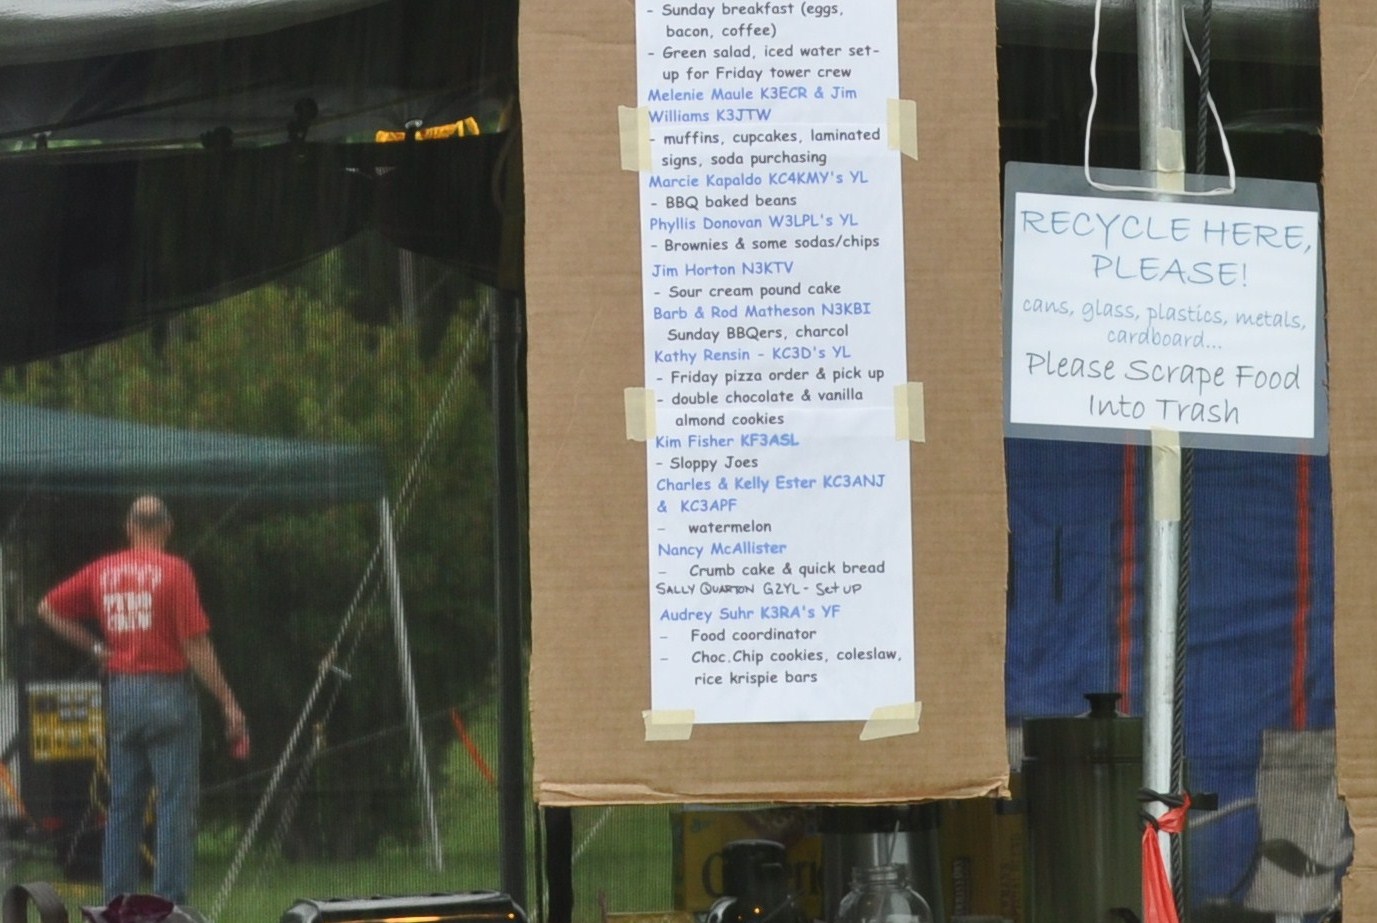 - Sunday breakfast (eggs,
bacon, coffee)
- Green salad, iced water set-
up for Friday tower crew
Melenie Maule K3ECR & Jim
Williams K3JTW
- muffins, cupcakes, laminated
signs, soda purchasing
Marcie Kapaldo KC4KMY's YL
- BBQ baked beans
Phyllis Donovan W3LPL's YL
- Brownies & some sodas/chips
Jim Horton N3KTV
- Sour cream pound cake
Barb & Rod Matheson N3KBI
Sunday BBQers, charcol
Kathy Rensin - KC3D's YL
- Friday pizza order & pick up
- double chocolate & vanilla
almond cookies
Kim Fisher KF3ASL
- Sloppy Joes
Charles & Kelly Ester KC3ANJ
& KC3APF
- watermelon
Nancy McAllister
- Crumb cake & quick bread
SALLY QUARTON G2YL - Set up
Audrey Suhr K3RA's YF
- Food coordinator
- Choc.Chip cookies, coleslaw,
rice krispie bars
RECYCLE HERE,
PLEASE!
cans, glass, plastics, metals,
cardboard...
Please Scrape Food
Into Trash